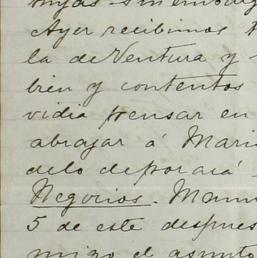 sin embarg
Ayer recibimos
la de Ventura y
bien y contentos
vidia pensar en
abrazar á Mari
delo deporará
Negocios. Mam
5 de este despues
migo el asunto